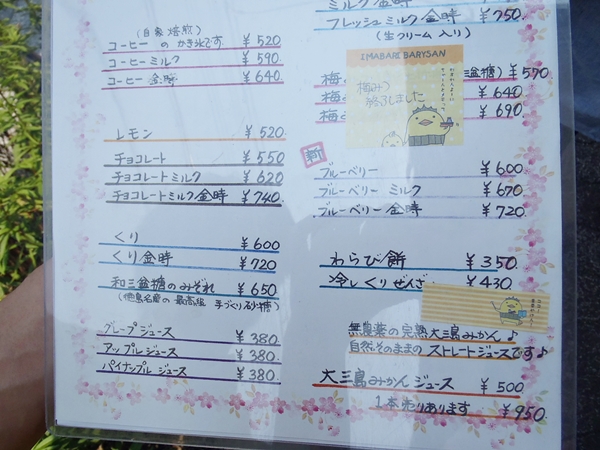 (自家焙煎)
コーヒーのかき氷です。 ¥520
コーヒーミルク ¥590
コーヒー金時 ¥640
レモン ¥520
チョコレート ¥550
チョコレートミルク ¥620
チョコレートミルク金時 ¥740
くり ¥600
くり金時 ¥720
和三盆糖のみぞれ ¥650
(徳島名産の最高級 手づくり砂糖)
グレープジュース ¥380
アップルジュース ¥380
パイナップルジュース ¥380
ミルク金時
フレッシュミルク金時 ¥750
(生クリーム入り)
IMABARI BARYSAN
梅みつ
終了しました
梅 盆糖) ¥570
梅 ¥640
梅 ¥690
新
ブルーベリー ¥600
ブルーベリーミルク ¥670
ブルーベリー金時 ¥720
わらび餅 ¥350
冷しくりぜんざ ¥430
無農薬の完熟大三島みかん♪
自然そのままのストレートジュースです♪
大三島みかんジュース ¥500
1本売りあります ¥950